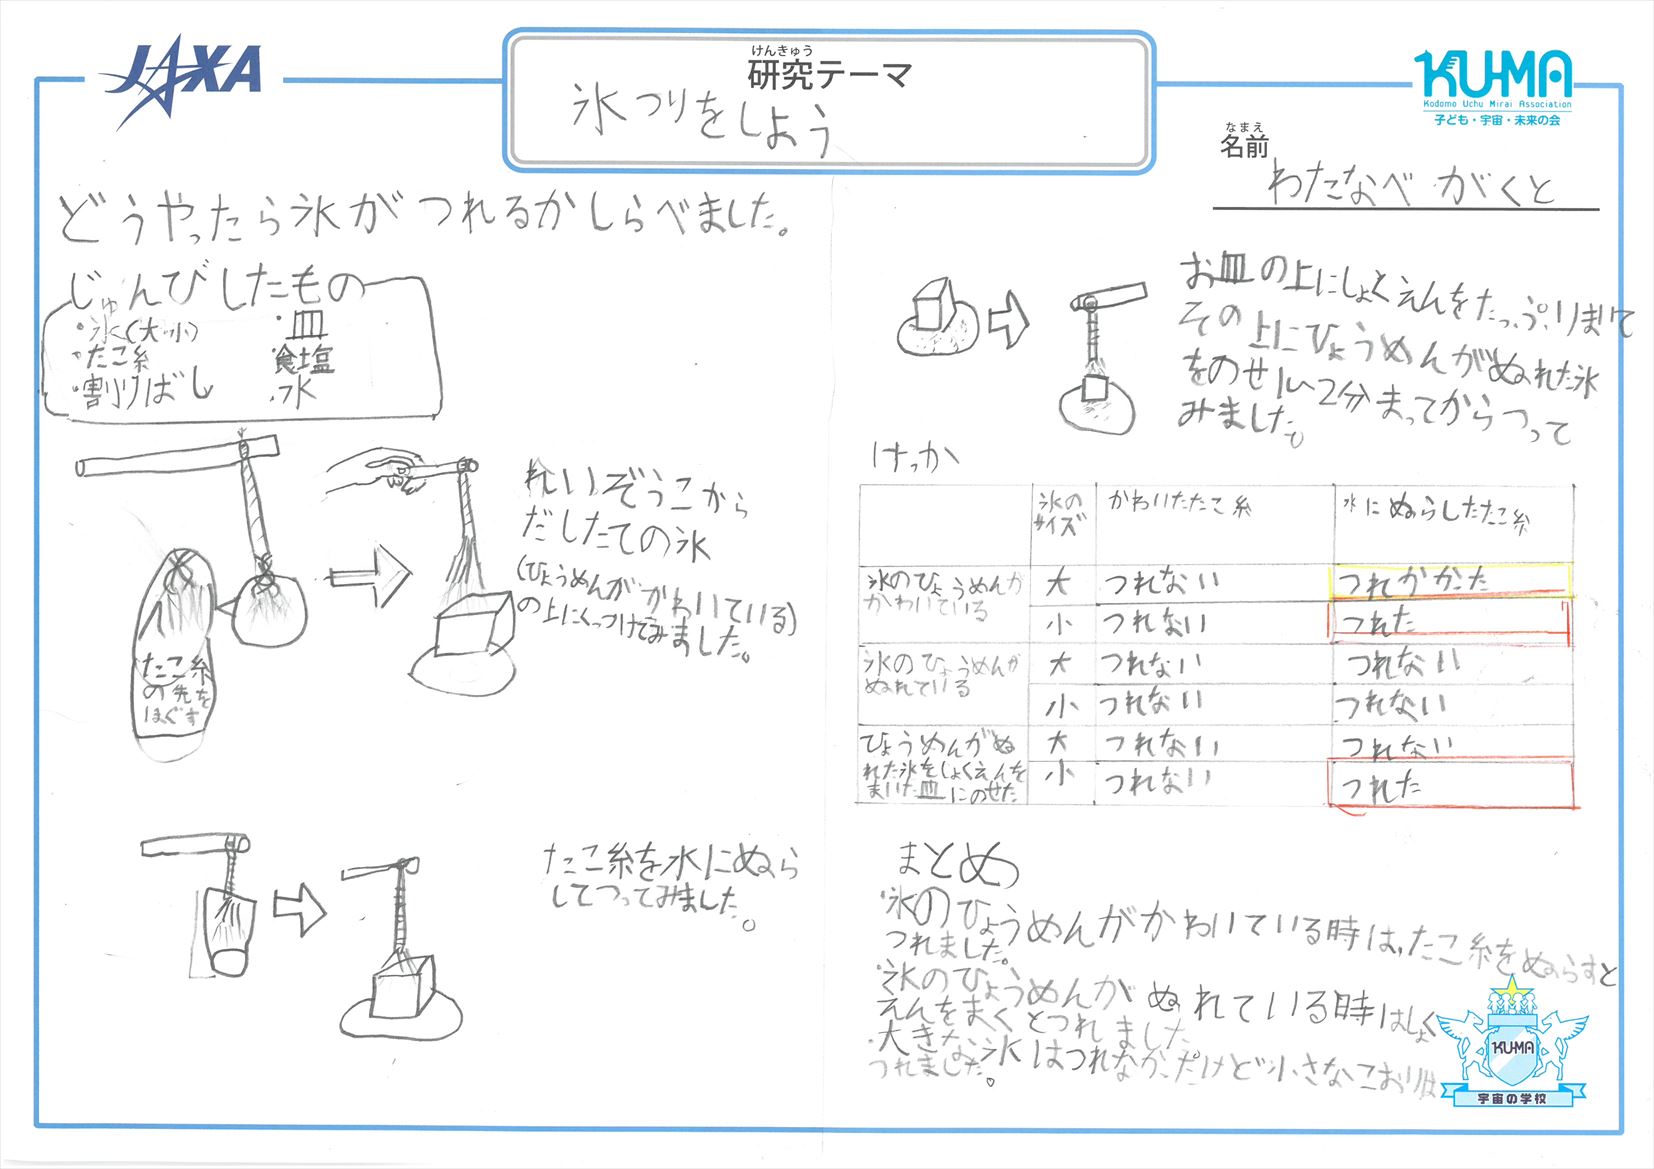 JAXA
けんきゅう
研究テーマ
氷つりをしよう
KU-MA
Kodomo Uchu Mirai Association
子ども・宇宙・未来の会
なまえ
名前
わたなべ がくと
どうやったら氷がつれるかしらべました。
じゅんびしたもの
・氷(大小)
・たこ糸
・割りばし
・皿
食塩
・水
たこ糸
の先を
ほぐす
れいぞうこから
だしたての氷
(ひょうめんがかわいている)
の上にくっつけてみました。
たこ糸を水にぬら
してつってみました。
お皿の上にしょくえんをたっぷりまいて
その上にひょうめんがぬれた氷
をのせ1〜2分まってからつって
みました。
けっか
氷の
サイズ
かわいたたこ糸
水にぬらしたたこ糸
氷のひょうめんが
かわいている
大
つれない
つれかかった
小
つれない
つれた
氷のひょうめんが
ぬれている
大
つれない
つれない
小
つれない
つれない
ひょうめんがぬ
れた氷をしょくえんを
まいた皿にのせた
大
つれない
つれない
小
つれない
つれた
まとめ
・氷のひょうめんがかわいている時は、たこ糸をぬらすと
つれました。
・氷のひょうめんがぬれている時はしょく
えんをまくとつれました
・大きな氷はつれなかっだけど小さなこおりは
つれました。
KU-MA
宇宙の学校